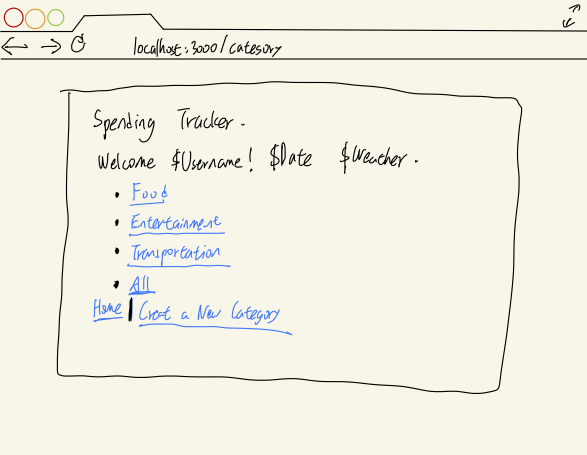 localhost:3000/category
Spending Tracker.
Welcome $Username! $Date $Weather.
• Food
• Entertainment
• Transportation
• All
Home | Creat a New Category